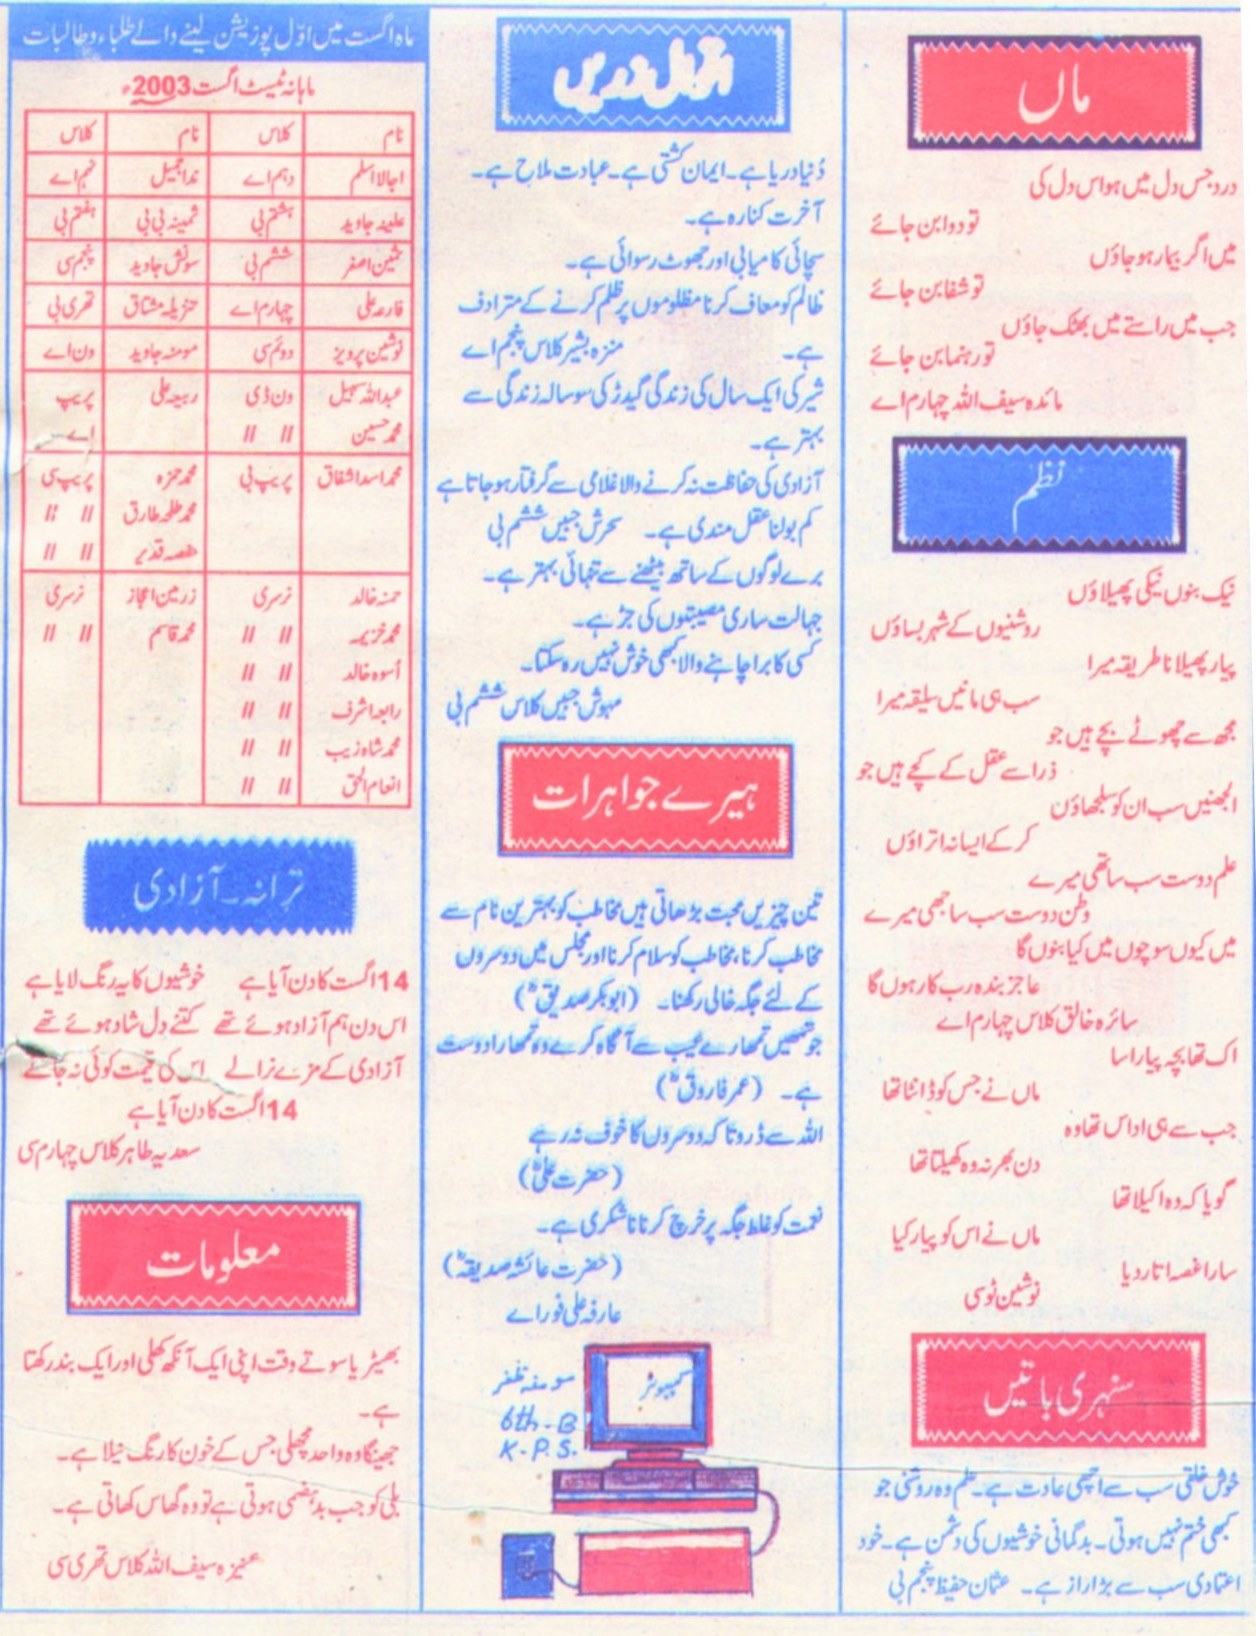 ماں
درد جس دل میں ہو اس دل کی
تو دوا بن جائے
میں اگر بیمار ہو جاؤں
تو شفا بن جائے
جب میں راستے میں بھٹک جاؤں
تو رہنما بن جائے
مائدہ سیف اللہ چہارم اے
نظم
نیک بنوں نیکی پھیلاؤں
روشنیوں کے شہر بساؤں
پیار پھیلانا طریقہ میرا
سب ہی مانیں سلیقہ میرا
مجھ سے چھوٹے بچے ہیں جو
ذرا سے عقل کے کچے ہیں جو
الجھنیں سب ان کو سلجھاؤں
کر کے ایسا نہ اتراؤں
علم دوست سب ساتھی میرے
وطن دوست سب ساجھی میرے
میں کیوں سوچوں میں کیا بنوں گا
عاجز بندہ رب کا رہوں گا
سائرہ خالق کلاس چہارم اے
اک تھا بچہ پیارا سا
ماں نے جس کو ڈانٹا تھا
جب سے ہی اداس تھا وہ
دن بھر نہ وہ کھیلتا تھا
گویا کہ وہ اکیلا تھا
ماں نے اس کو پیار کیا
سارا غصہ اتار دیا
نوشین ٹو سی
سنہری باتیں
خوش خلقی سب سے اچھی عادت ہے۔ علم وہ روشنی جو
کبھی ختم نہیں ہوتی۔ بدگمانی خوشیوں کی دشمن ہے۔ خود
اعتمادی سب سے بڑا راز ہے۔ عثمان حفیظ پنجم بی
اقوال زریں
دُنیا دریا ہے۔ ایمان کشتی ہے۔ عبادت ملاح ہے۔
آخرت کنارہ ہے۔
سچائی کامیابی اور جھوٹ رسوائی ہے۔
ظالم کو معاف کرنا مظلوموں پر ظلم کرنے کے مترادف
ہے۔ منزہ بشیر کلاس پنجم اے
شیر کی ایک سال کی زندگی گیدڑ کی سو سالہ زندگی سے
بہتر ہے۔
آزادی کی حفاظت نہ کرنے والا غلامی سے گرفتار ہو جاتا ہے
کم بولنا عقل مندی ہے۔ سحرش جبیں ششم بی
برے لوگوں کے ساتھ بیٹھنے سے تنہائی بہتر ہے۔
جہالت ساری مصیبتوں کی جڑ ہے۔
کسی کا برا چاہنے والا کبھی خوش نہیں رہ سکتا۔
مہوش جبیں کلاس ششم بی
ہیرے جواہرات
تین چیزیں محبت بڑھاتی ہیں مخاطب کو بہترین نام سے
مخاطب کرنا، مخاطب کو سلام کرنا اور مجلس میں دوسروں
کے لئے جگہ خالی رکھنا۔ (ابوبکر صدیقؓ)
جو تمھیں تمھارے عیب سے آگاہ کرے وہ تمھارا دوست
ہے۔ (عمر فاروقؓ)
اللہ سے ڈرو تاکہ دوسروں کا خوف نہ رہے
(حضرت علیؓ)
نعمت کو غلط جگہ پر خرچ کرنا ناشکری ہے۔
(حضرت عائشہ صدیقہؓ)
عارفہ علی فور اے
کمپیوٹر
مومنہ ظفر
6th-B
K.P.S.
ماہ اگست میں اوّل پوزیشن لینے والے طلباء و طالبات
ماہانہ ٹیسٹ اگست 2003ء
نام کلاس نام کلاس
اجالا اسلم دہم اے ندا جمیل نہم اے
علینہ جاوید ہشتم بی ثمینہ بی بی ہفتم بی
ثمین اصغر ششم بی سونش جاوید پنجم سی
فارعہ علی چہارم اے حنزیلہ مشتاق تھری بی
نوشین پرویز دوئم سی مومنہ جاوید ون اے
عبداللہ سہیل ون ڈی ربیعہ علی پریپ
محمد حسین // // اے
محمد اسد اشفاق پریپ بی محمد حمزہ پریپ سی
محمد طلحہ طارق // //
حفصہ قدیر // //
حمنہ خالد نرسری زرمین اعجاز نرسری
محمد خزیمہ // // محمد قاسم // //
اُسوہ خالد // //
رابعہ اشرف // //
محمد شاہ زیب // //
انعام الحق // //
ترانہ۔ آزادی
14 اگست کا دن آیا ہے خوشیوں کا یہ رنگ لایا ہے
اس دن ہم آزاد ہوئے تھے کتنے دل شاد ہوئے تھے
آزادی کے مزے نرالے اس کی قیمت کوئی نہ جانے
14 اگست کا دن آیا ہے
سعدیہ طاہر کلاس چہارم سی
معلومات
بھیڑیا سوتے وقت اپنی ایک آنکھ کھلی اور ایک بند رکھتا
ہے۔
جھینگا وہ واحد مچھلی جس کے خون کا رنگ نیلا ہے۔
بلی کو جب بدہضمی ہوتی ہے تو وہ گھاس کھاتی ہے۔
عنیزہ سیف اللہ کلاس تھری سی